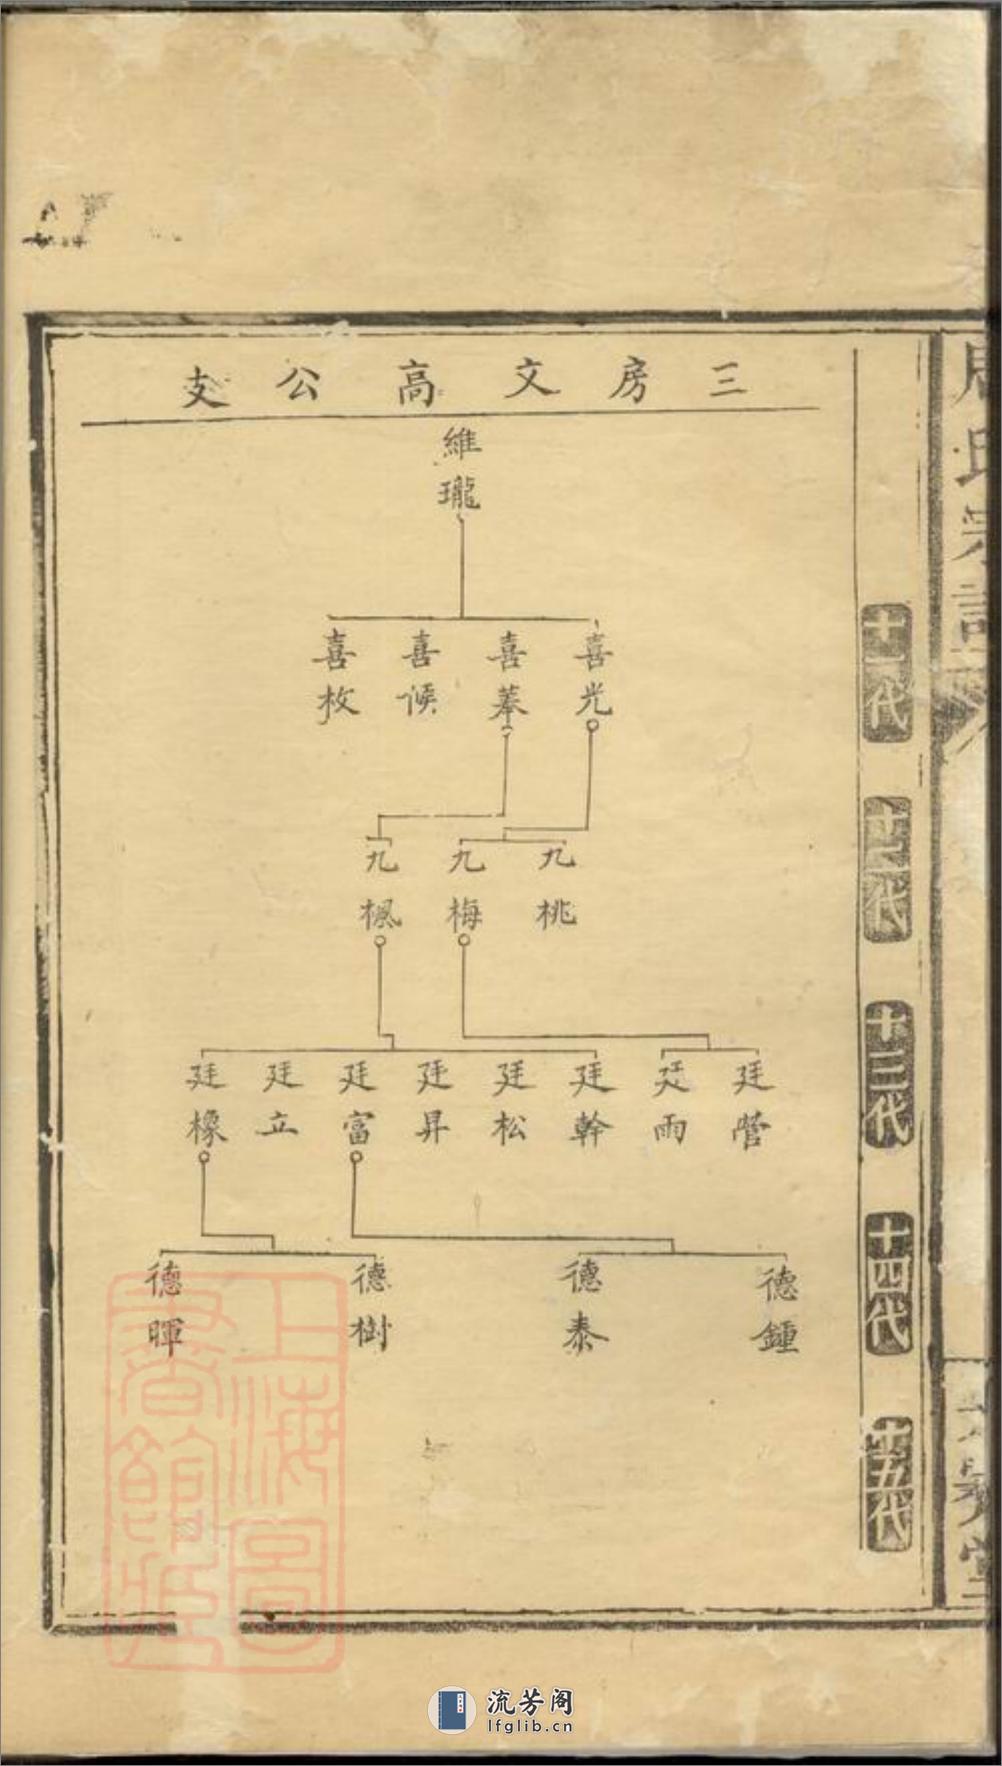 三房文高公支
維瓏
喜光
喜奉
喜候
喜枚
九桃
九梅
九楓
廷營
廷雨
廷幹
廷松
廷昇
廷富
廷立
廷橡
德鍾
德泰
德樹
德暉
十一代
十二代
十三代
十四代
十五代
周氏宗譜
上海圖書館藏
流芳阁
lfglib.cn